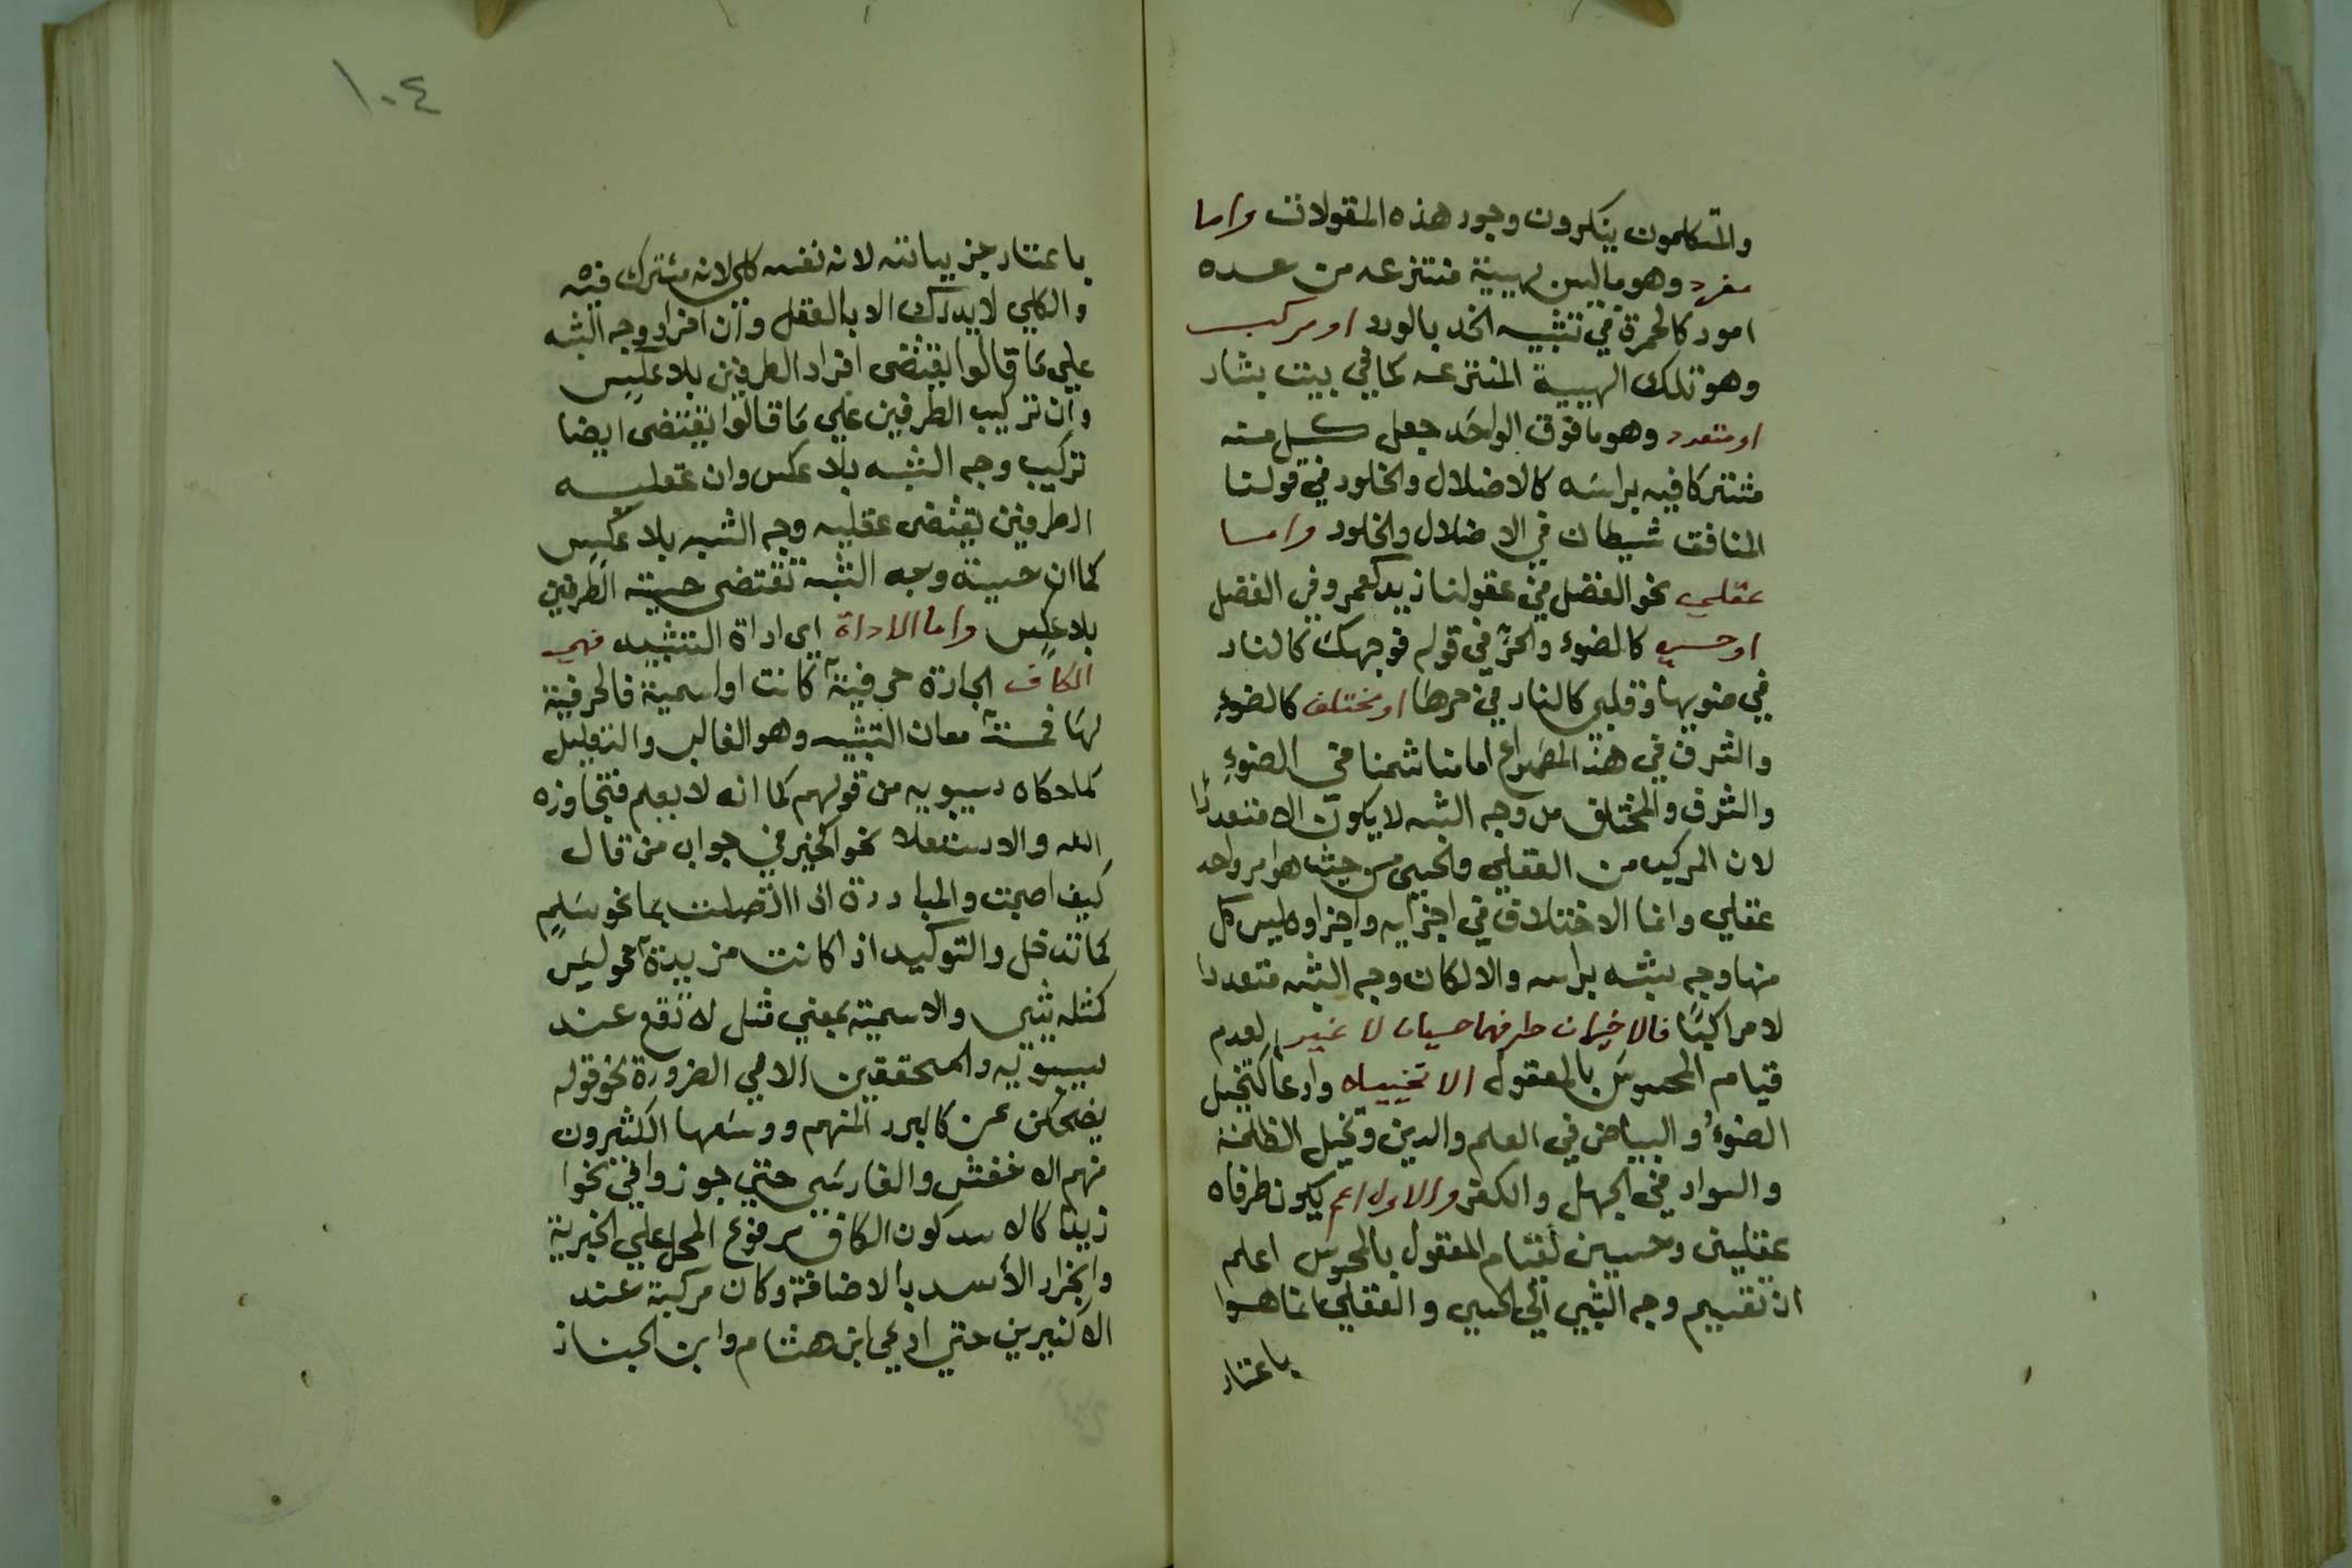 والمتكلمون ينكرون وجود هذه المقولات واما
مفرد وهو ماليس لهيئة منتزعه من عده
امور كالحمرة في تشبيه الخد بالورد او مركب
وهو تلك الهيية المنتزعه كما في بيت بشار
او متعدد وهو ما فوق الواحد جعل كل منه
مشتركا فيه براسه كالاضلال والخلود في قولنا
المنافق شيطان في الاضلال والخلود واما
عقلي نحو الفضل في عقولنا زيد كعمرو في الفضل
او حسي كالضوء والحر في قوله فوجهك كالنار
في ضويها وقلبي كالنار في حرها او مختلف كالضوء
والشرف في هذ المصراع امامنا شمنا في الضوء
والشرف والمختلف من وجه الشبه لا يكون الا متعددا
لان المركب من العقلي والحسي من حيث هو امر واحد
عقلي وانما الاختلاف في اجزايه واجزاوه ليس كل
منها وجه شبه براسه والا لكان وجه الشبه متعددا
لا مراكبًا فالاخيران طرفهما حسيان لا غير لعدم
قيام المحسوس بالمعقول الا تخييلا وادعا كتخيل
الضوء والبياض في العلم والدين وتخيل الظلمة
والسواد في الجهل والكفر والاول اعم يكون طرفاه
عقليين وحسيين لقيام المعقول بالمحسوس اعلم
ان تقسيم وجه الشبه الي الحسي والعقلي انما هوا
باعتبار
١٠٤
باعتبار جزيياته لانه نفسه كلي لانه مشترك فيه
والكلي لا يدرك الا بالعقل وان افراد وجه الشبه
علي ما قالوا يقتضى افراد الطرفين بلا عكس
وان تركيب الطرفين علي ما قالوا يقتضى ايضا
تركيب وجه الشبه بلا عكس وان عقليه
الطرفين يقتضى عقليه وجه الشبه بلا عكس
كما ان حسية وجه الشبه تقتضى حسية الطرفين
بلا عكس واما الاداة اي اداة التشبيه فهي
الكاف الجارة حرفية كانت او اسمية فالحرفية
لها خمسة معان التشبيه وهو الغالب والتعليل
كما حكاه سيبويه من قولهم كما انه لا يعلم فتجاوزه
الله والاستعلا نحو كخير في جواب من قال
كيف اصبحت والمبادرة اذا اتصلت بما نحو سلم
كما تدخل والتوكيد اذا كانت مزيدة نحو ليس
كمثله شي والاسمية بمعني مثل لا تقع عند
سيبويه والمحققين الا في الضرورة نحو قوله
يضحكن عن كالبرد المنهم ووسعها الكثيرون
منهم الاخفش والفارسي حتي جوزوا في نحوا
زيد كالاسد كون الكاف مرفوع المحل علي الخبرية
وانجرار الأسد بالاضافة وكان مركبة عند
الاكثيرين حتي ادعي ابن هشام وابن الخباز